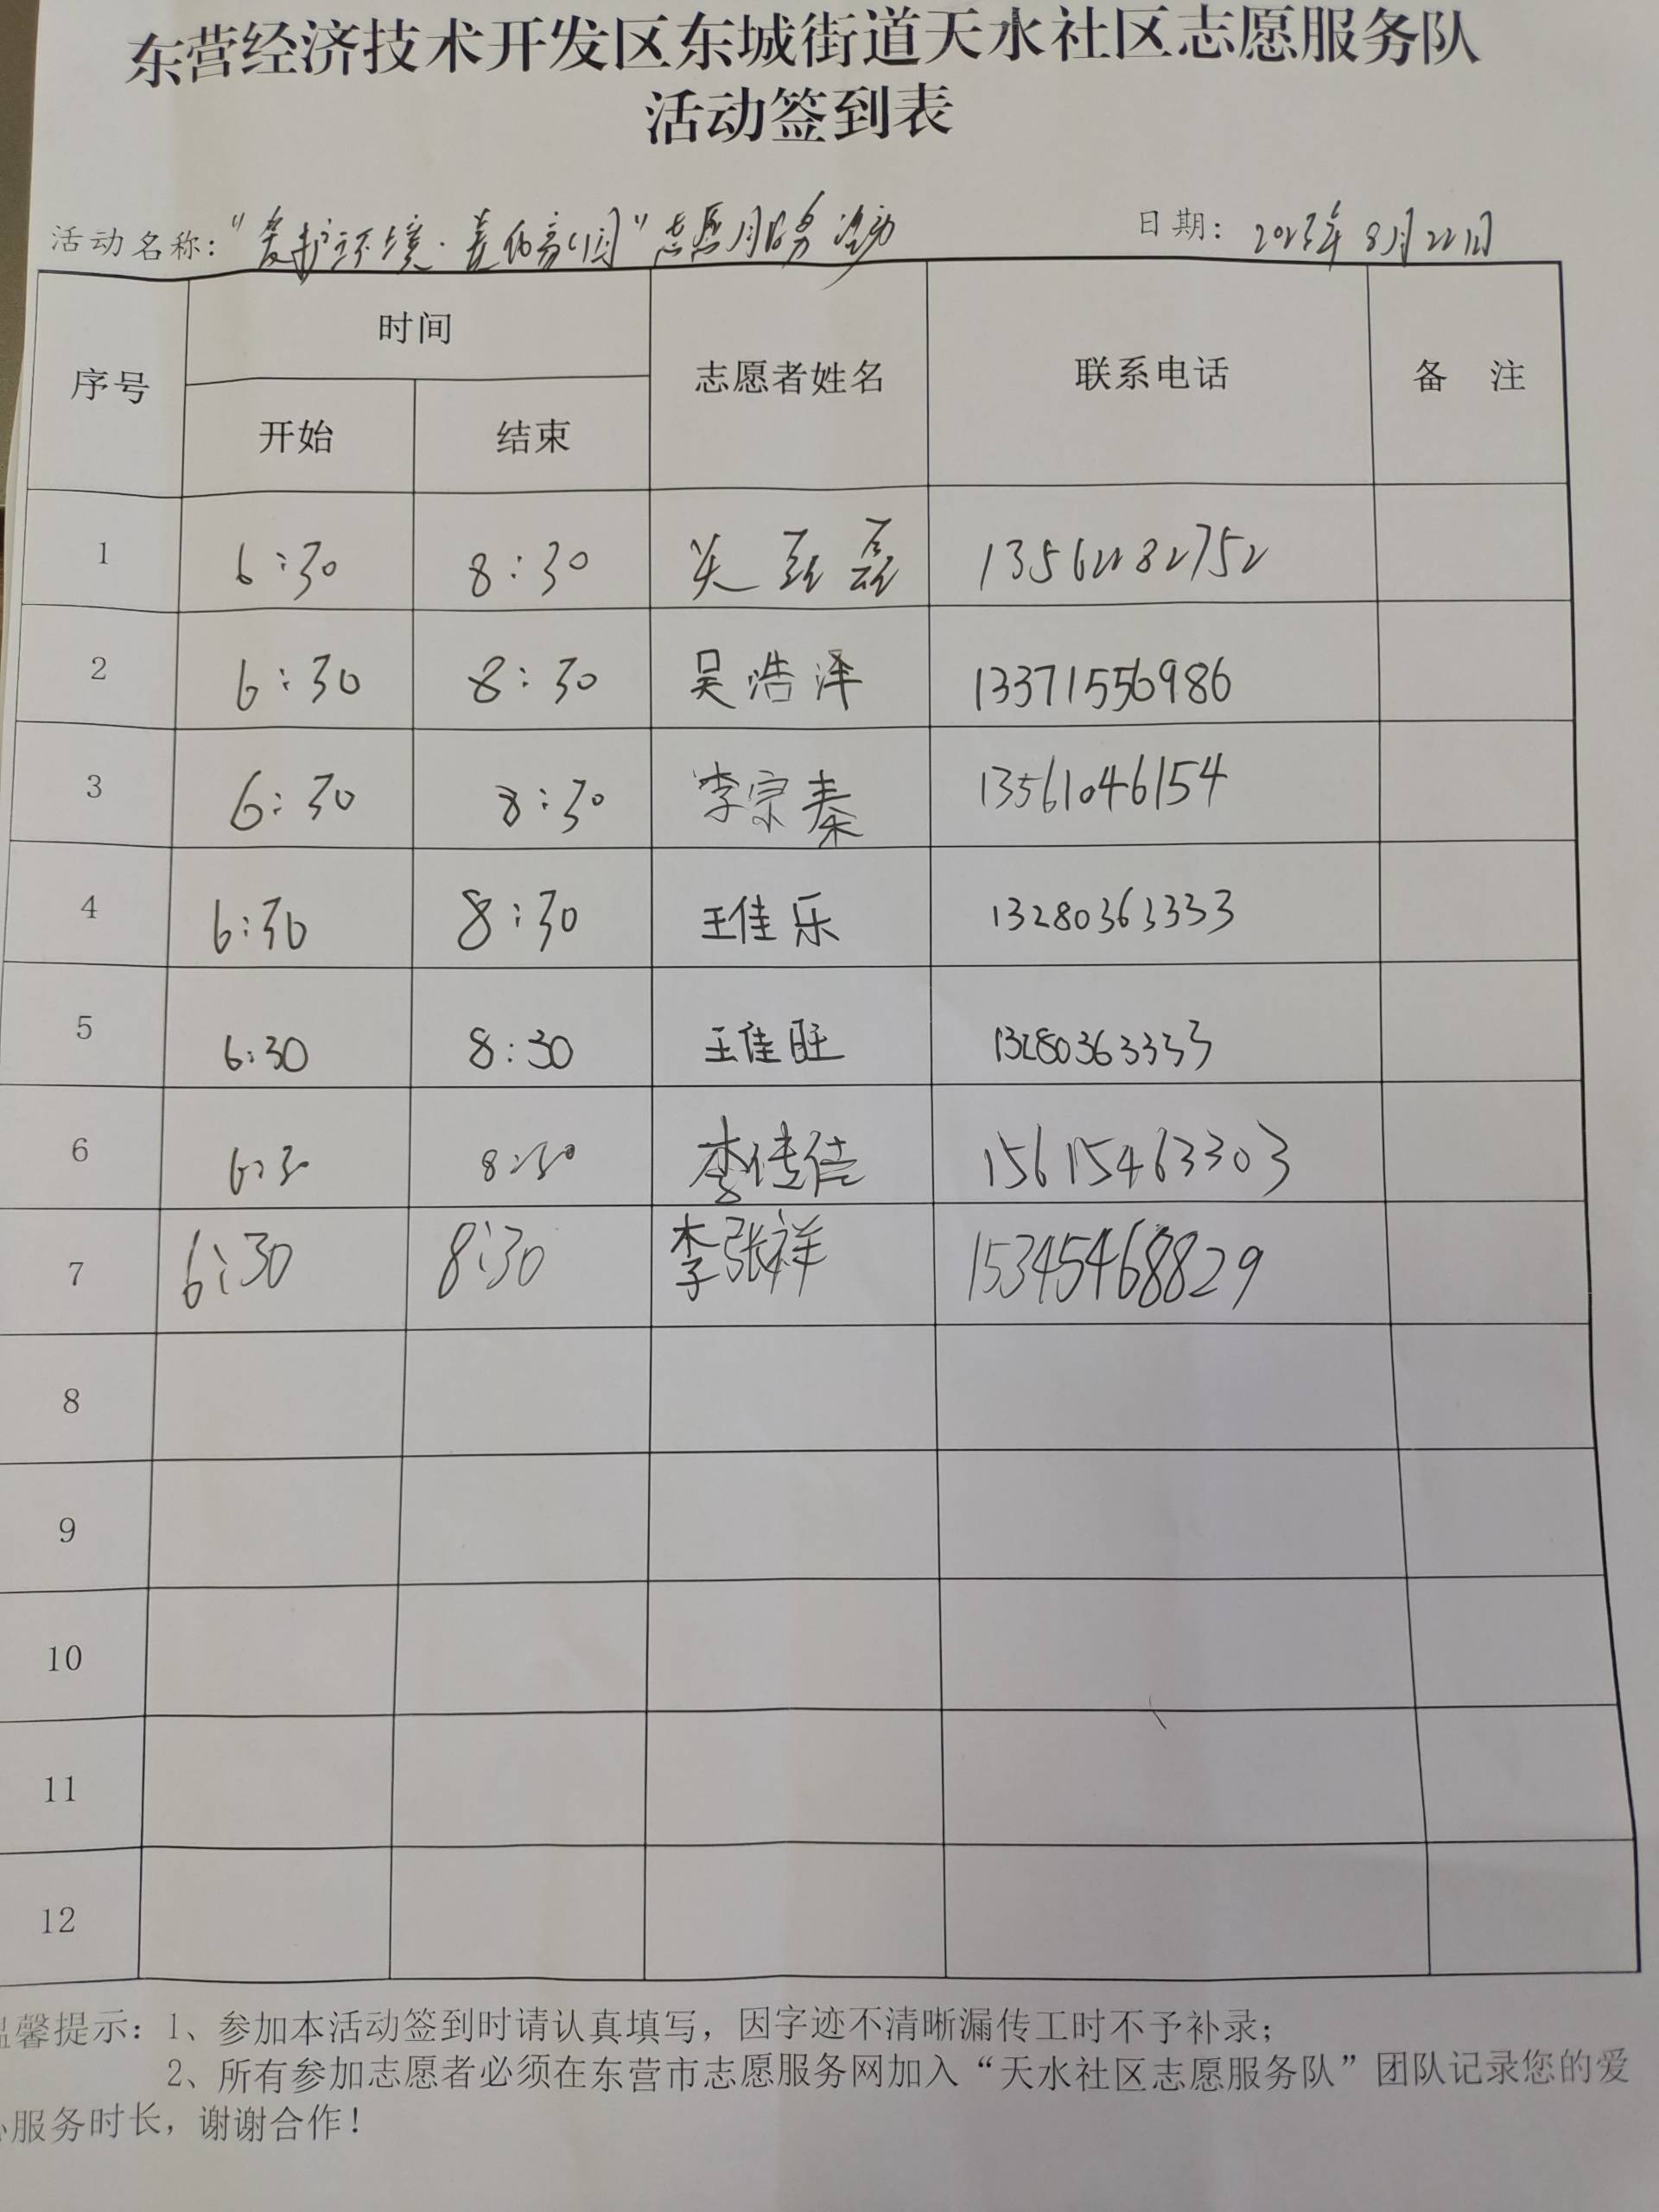 东营经济技术开发区东城街道天水社区志愿服务队
活动签到表
活动名称：“爱护环境·美化家园”志愿服务活动 日期：2023年8月22日
序号 时间 志愿者姓名 联系电话 备 注
开始 结束
1 6:30 8:30 13562282752
2 6:30 8:30 吴浩泽 13371556986
3 6:30 8:30 李宗秦 13561046154
4 6:30 8:30 王佳乐 13280363333
5 6:30 8:30 王佳旺 13280363333
6 6:30 8:30 李传佳 15615463303
7 6:30 8:30 李张祥 15345468829
8
9
10
11
12
温馨提示：1、参加本活动签到时请认真填写，因字迹不清晰漏传工时不予补录；
2、所有参加志愿者必须在东营市志愿服务网加入“天水社区志愿服务队”团队记录您的爱
心服务时长，谢谢合作！